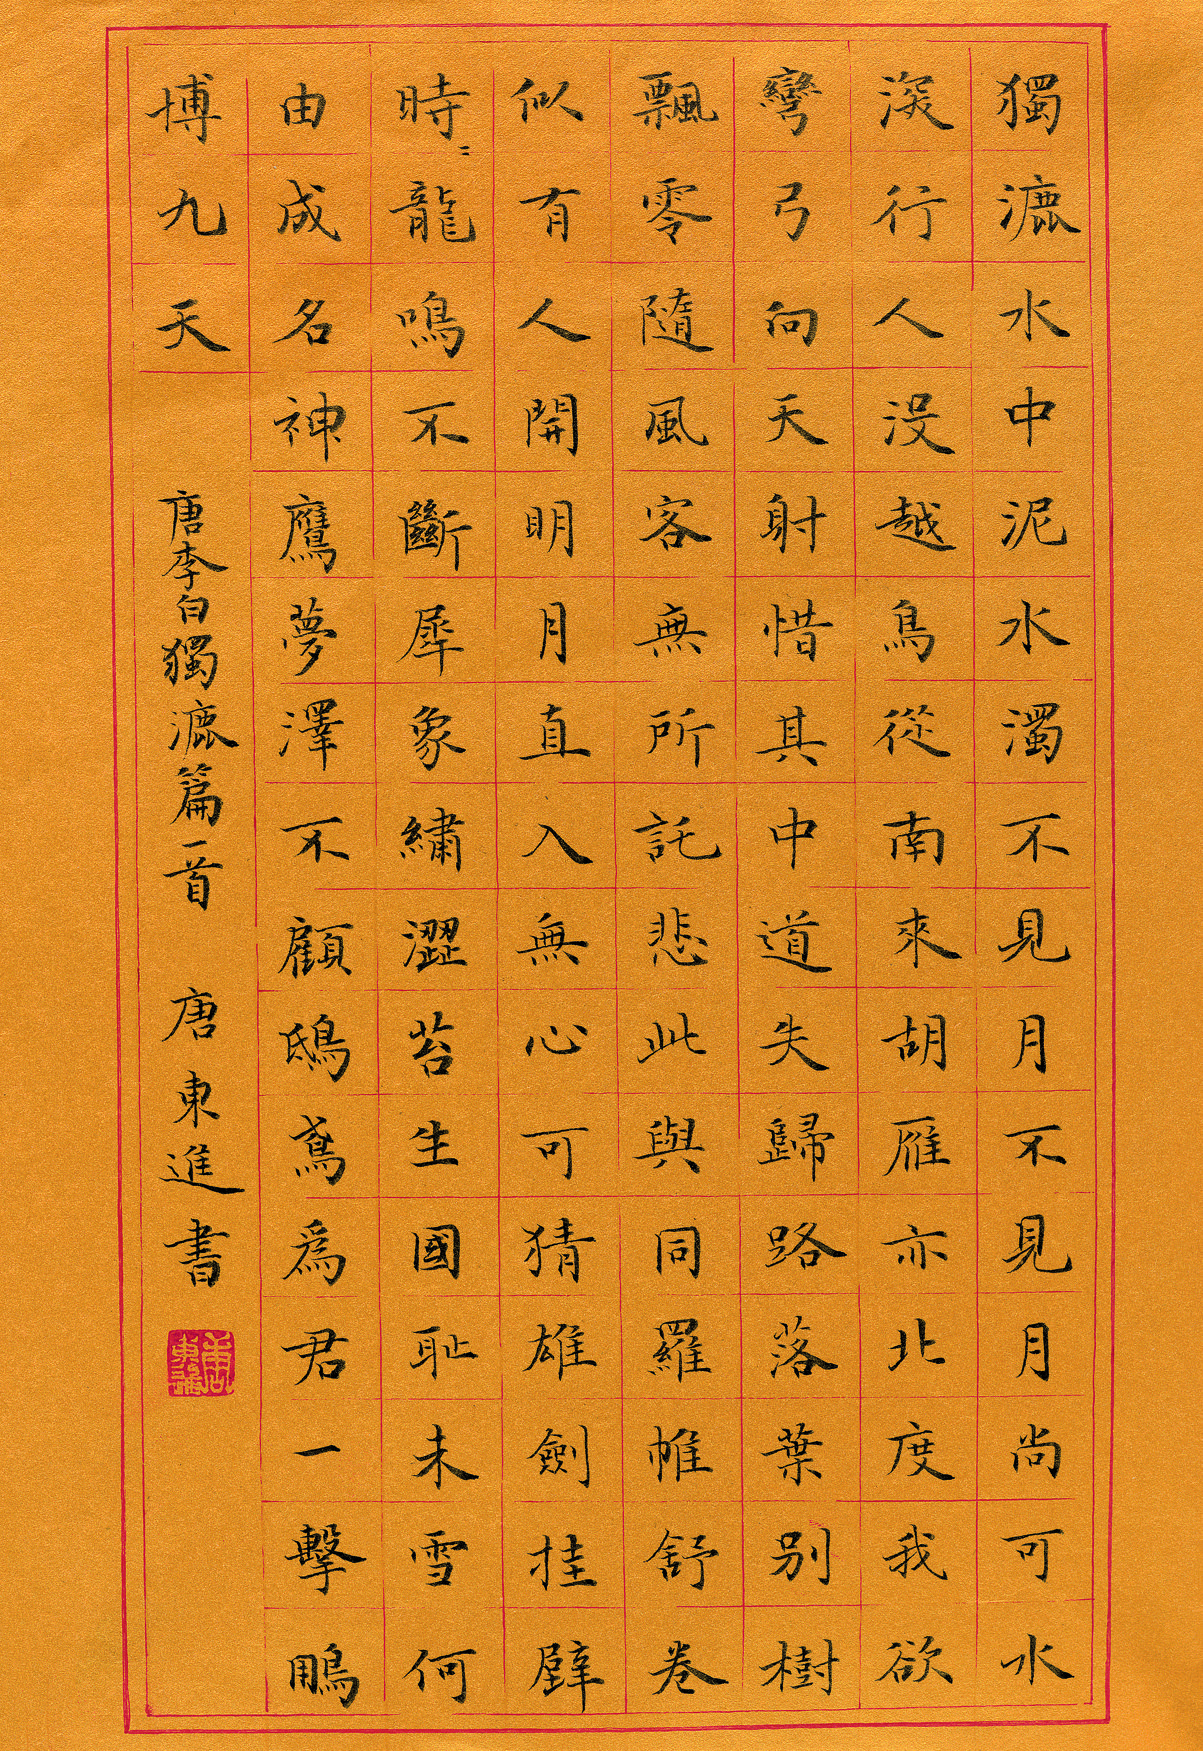 獨漉水中泥水濁不見月不見月尚可水
深行人没越鳥從南來胡雁亦北度我欲
彎弓向天射惜其中道失歸路落葉别樹
飄零隨風客無所託悲此與同羅帷舒卷
似有人開明月直入無心可猜雄劍挂壁
時〻龍鳴不斷犀象繡澀苔生國耻未雪何
由成名神鷹夢澤不顧鴟鳶爲君一擊鵬
博九天 唐李白獨漉篇一首 唐東進書